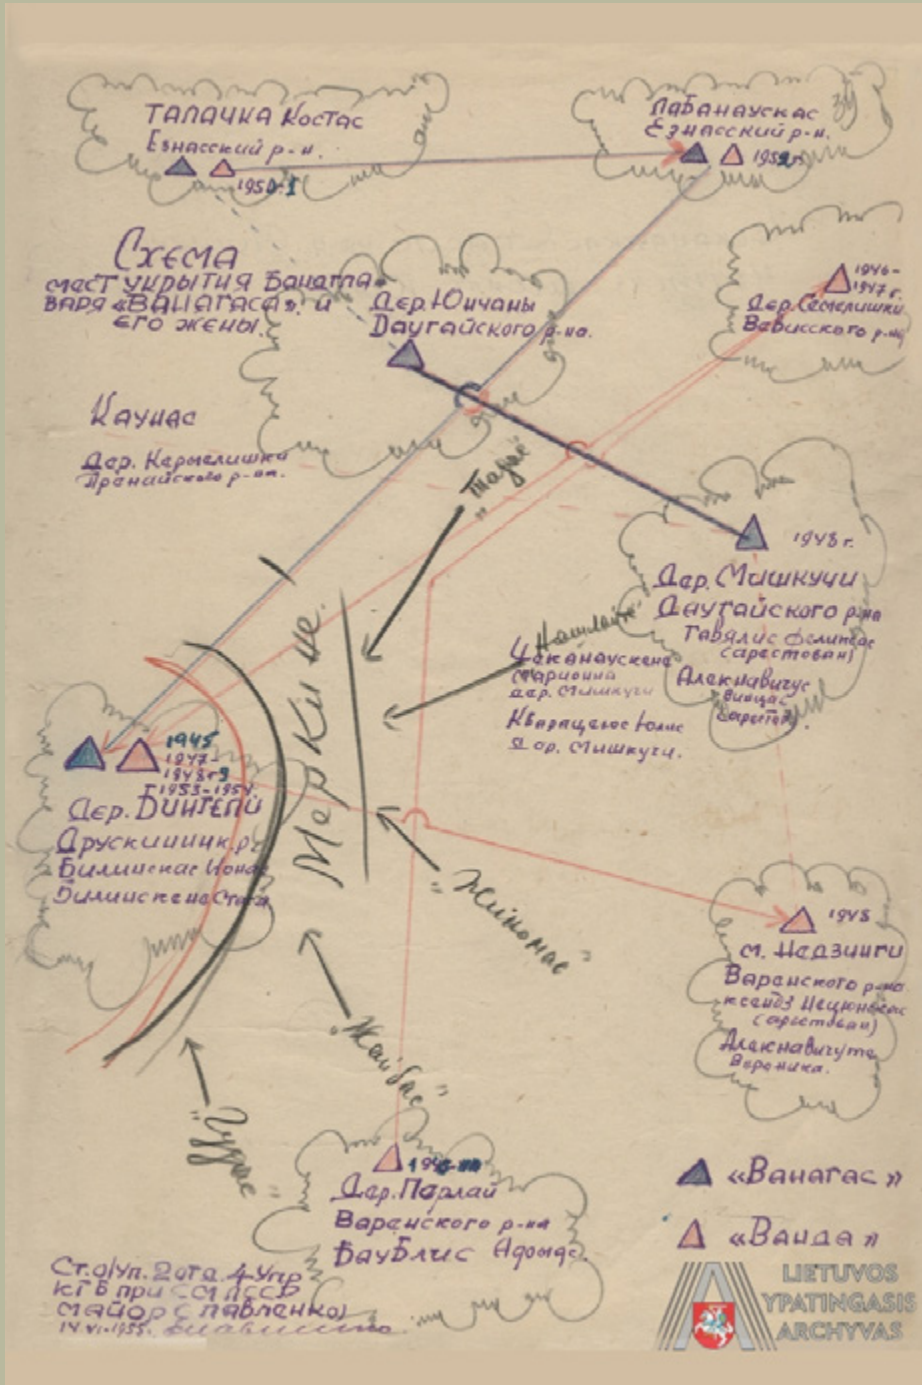 ТАЛАЧКА Костас
Езнасский р-н.
1950-1
Лабанаускас
Езнасский р-н.
Схема
мест укрытия Банагла-
варя «ВАНАГАСА» и
его жены.
Дер. Юнчаны
Даугайского р-на.
1946-
1947 г.
Дер. Семелишки
Вевисского р-на
Каунас
Дер. Кермелишки
Пренайского р-на.
1948 г.
Дер. Мишкучи
Даугайского р-на
(арестован)
Алекнавичус
Винцас
Чеканаускене
Марионна
дер. Мишкучи
Юлис
Дер. Мишкучи.
Меркине.
1945
1947-
1953-
Друскининк. р.
Билинскас Ионас
Билинскене
„Жайбас"
1948
м. Недзинги
Варенского р-на
ксендз
(арестован)
Алекнавичуте
Вероника.
Дер. Парлай
Варенского р-на
Баублис
«Ванагас»
«Ванда»
Ст. о/уп. 2 отд. 4 Упр
КГБ при СМ ЛССР
майор (Павленко)
14.VI-1955.
LIETUVOS
YPATINGASIS
ARCHYVAS